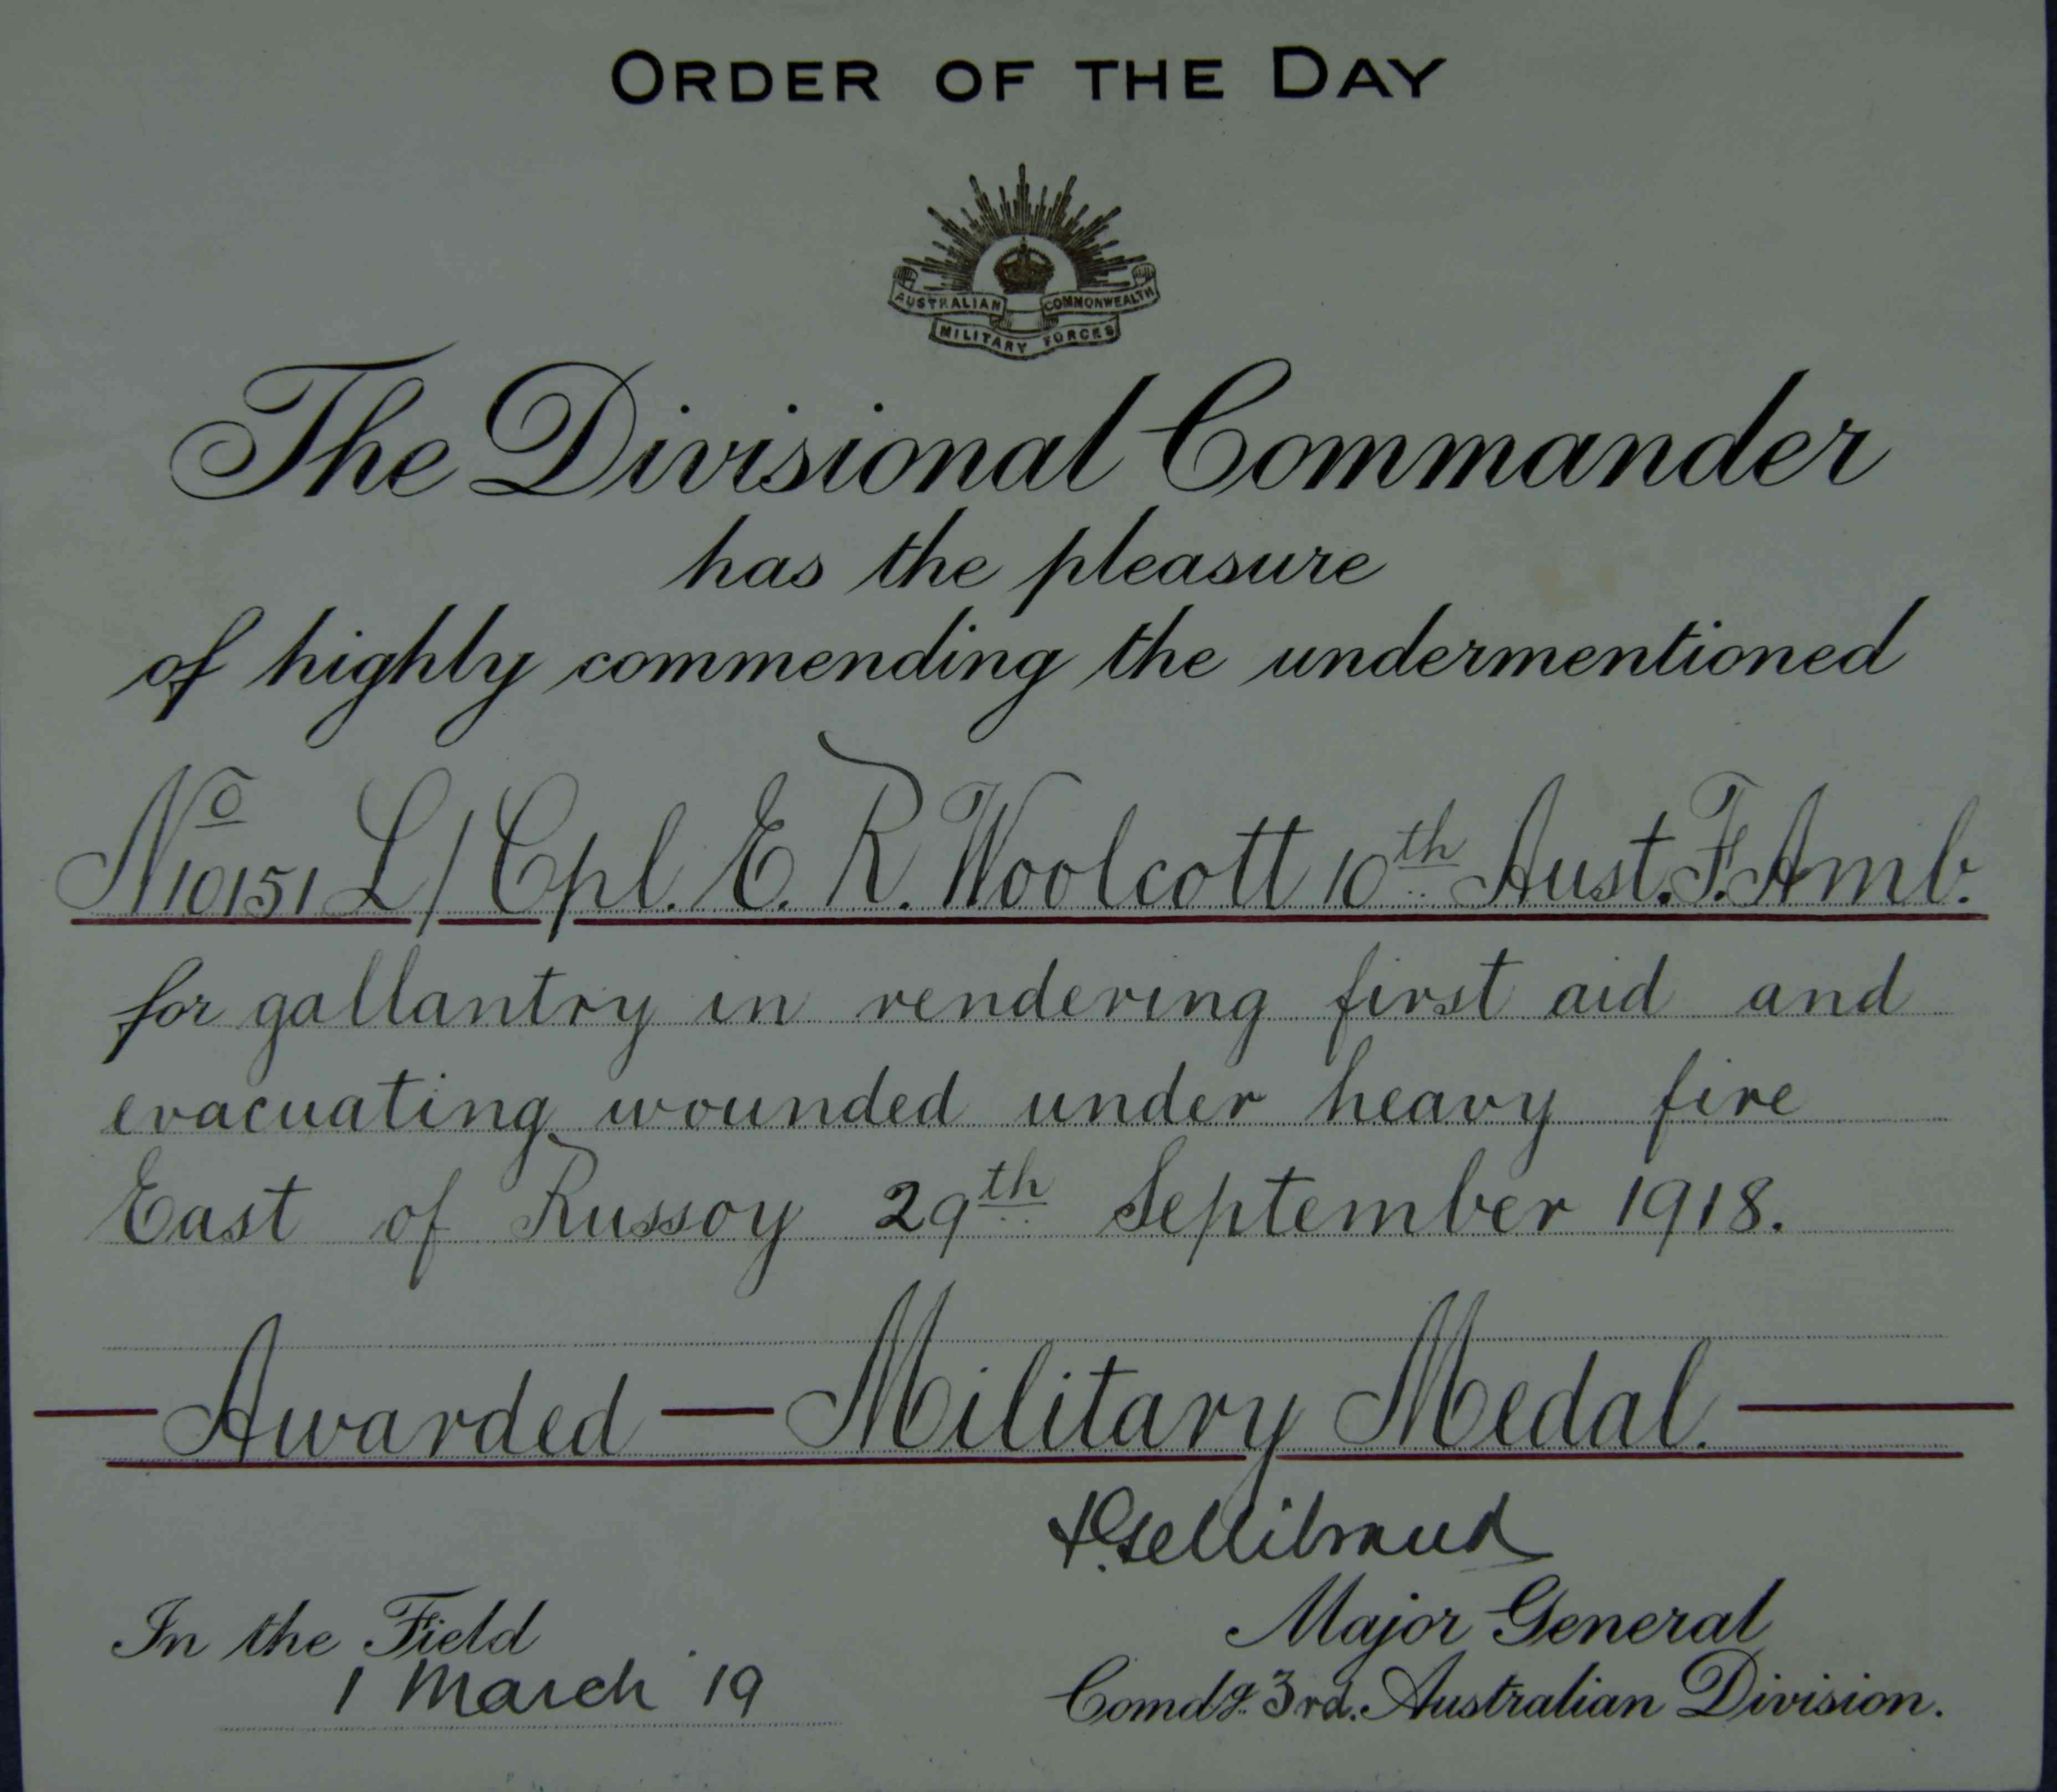 ORDER OF THE DAY
AUSTRALIAN COMMONWEALTH
MILITARY FORCES
The Divisional Commander
has the pleasure
of highly commending the undermentioned
No 10151 L/Cpl. E. R. Woolcott 10th Aust. F. Amb.
for gallantry in rendering first aid and
evacuating wounded under heavy fire
East of Russoy 29th September 1918.
— Awarded — Military Medal. —
J. Gellibrand
Major General
In the Field
1 March 19
Comdg. 3rd. Australian Division.